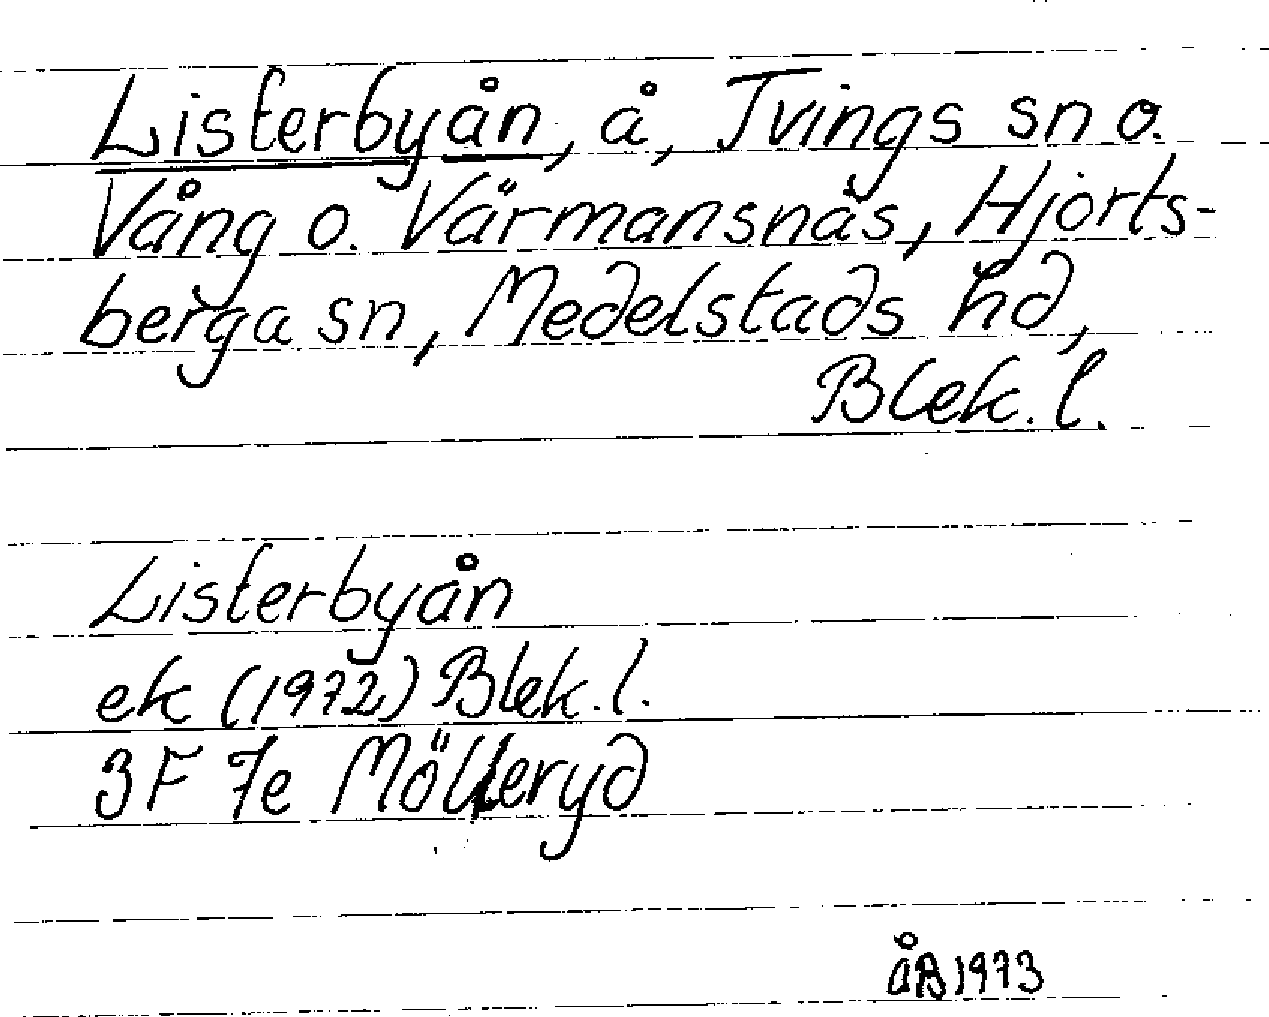 Listerbyån, å, Tvings sn o.
Vång o. Värmansnäs, Hjorts-
berga sn, Medelstads hd,
Blek. l.
Listerbyån
ek (1972) Blek. l.
3F 7e Mölleryd
åB 1973